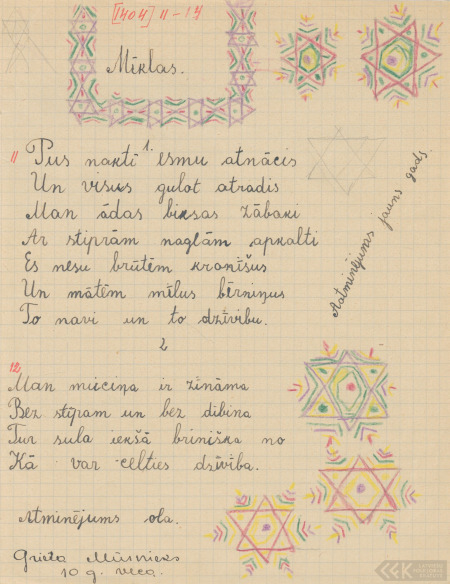 [1404] 11-12
Mīklas.
1.
11 Pus naktī esmu atnācis
Un visus guļot atradis
Man ādas biksas zābaki
Ar stiprām naglām apkalti
Es nesu brūtēm kronīšus
Un mātēm mīļus bērniņus
To navi un to dzīvību.
Atminējums jauns gads.
2
12 Man muciņa ir zināma
Bez stīpam un bez dibina
Tur sula iekšā brīniška no
Kā var celties dzīvība.
Atminējums ola.
Grieta Mūsnieks
10 g. veca.